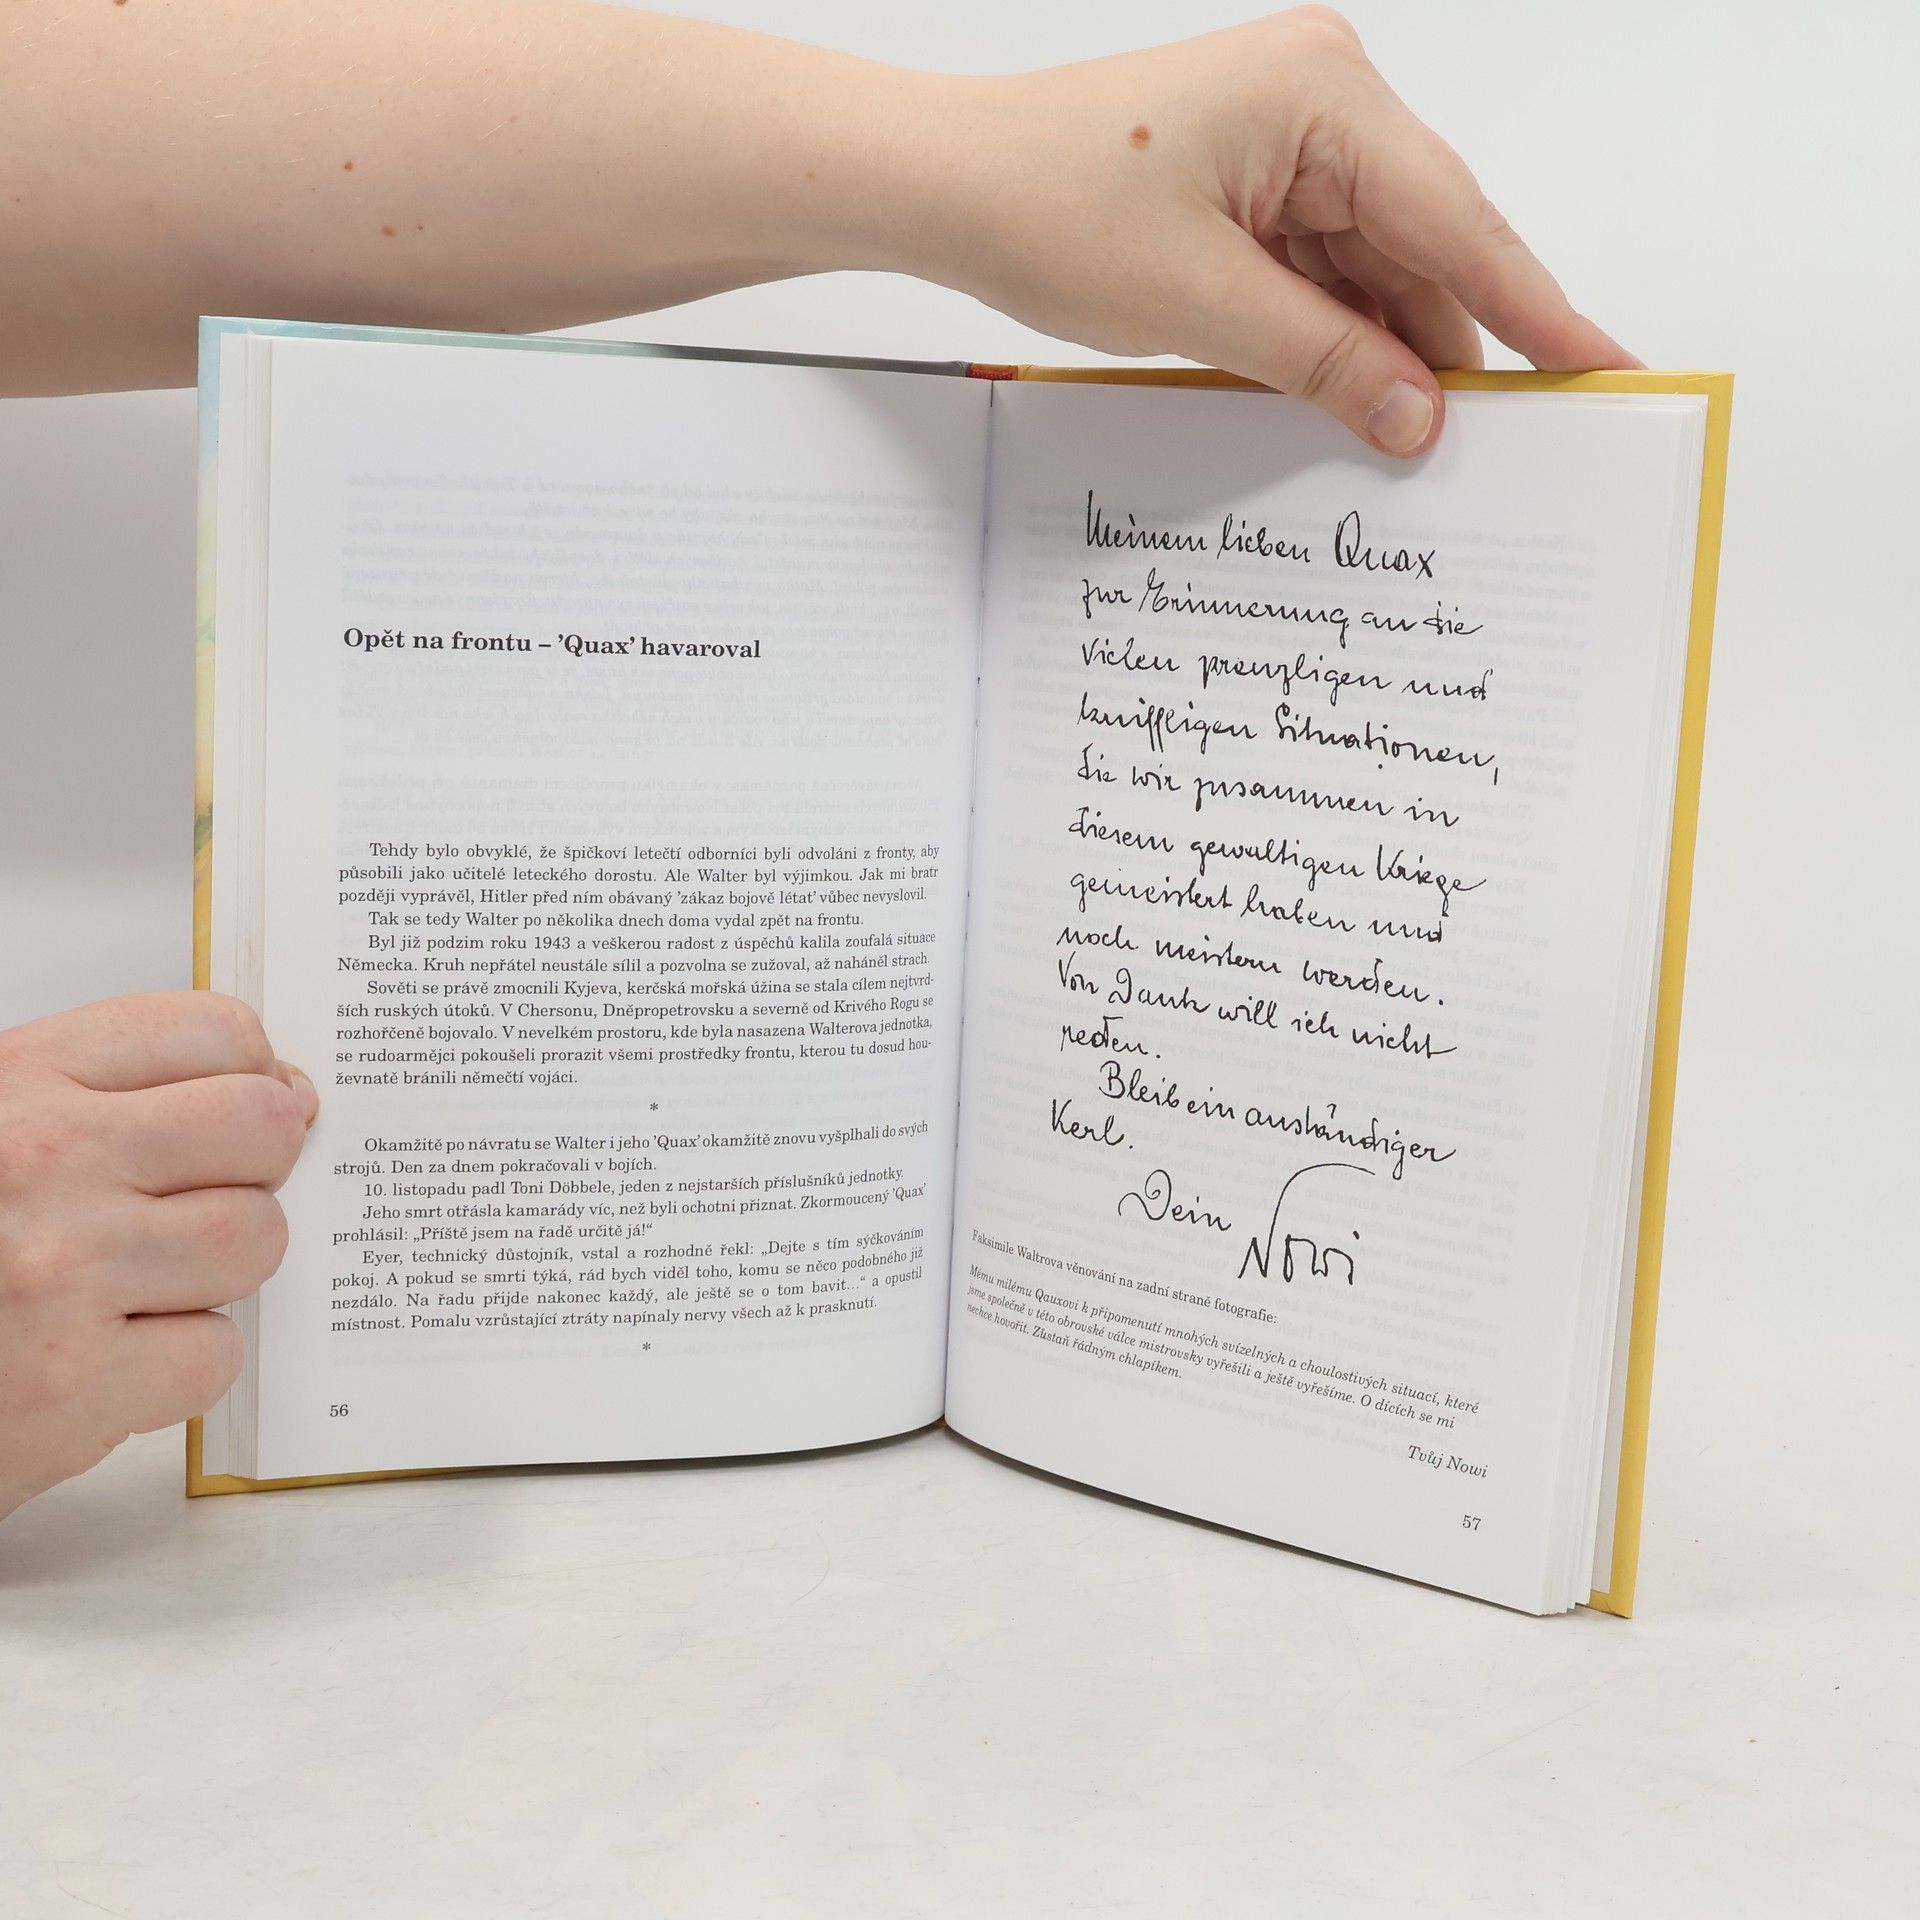 Opět na frontu – ’Quax’ havaroval
Tehdy bylo obvyklé, že špičkoví letečtí odborníci byli odvoláni z fronty, aby
působili jako učitelé leteckého dorostu. Ale Walter byl výjimkou. Jak mi bratr
později vyprávěl, Hitler před ním obávaný ’zákaz bojově létat’ vůbec nevyslovil.
Tak se tedy Walter po několika dnech doma vydal zpět na frontu.
Byl již podzim roku 1943 a veškerou radost z úspěchů kalila zoufalá situace
Německa. Kruh nepřátel neustále sílil a pozvolna se zužoval, až naháněl strach.
Sověti se právě zmocnili Kyjeva, kerčská mořská úžina se stala cílem nejtvrd-
ších ruských útoků. V Chersonu, Dněpropetrovsku a severně od Krivého Rogu se
rozhořčeně bojovalo. V nevelkém prostoru, kde byla nasazena Walterova jednotka,
se rudoarmějci pokoušeli prorazit všemi prostředky frontu, kterou tu dosud hou-
ževnatě bránili němečtí vojáci.
*
Okamžitě po návratu se Walter i jeho ’Quax’ okamžitě znovu vyšplhali do svých
strojů. Den za dnem pokračovali v bojích.
10. listopadu padl Toni Döbbele, jeden z nejstarších příslušníků jednotky.
Jeho smrt otřásla kamarády víc, než byli ochotni přiznat. Zkormoucený ’Quax’
prohlásil: „Příště jsem na řadě určitě já!“
Eyer, technický důstojník, vstal a rozhodně řekl: „Dejte s tím sýčkováním
pokoj. A pokud se smrti týká, rád bych viděl toho, komu se něco podobného již
nezdálo. Na řadu přijde nakonec každý, ale ještě se o tom bavit...“ a opustil
místnost. Pomalu vzrůstající ztráty napínaly nervy všech až k prasknutí.
*
56
Meinem lieben Quax
zur Erinnerung an die
vielen prenzligen und
kniffligen Situationen,
die wir zusammen in
diesem gewaltigen Kriege
gemeistert haben und
noch meistern werden.
Von Dank will ich nicht
reden.
Bleib ein anständiger
Kerl.
Dein Nowi
Faksimile Waltrova věnování na zadní straně fotografie:
Mému milému Qauxovi k připomenutí mnohých svízelných a choulostivých situací, které
jsme společně v této obrovské válce mistrovsky vyřešili a ještě vyřešíme. O dících se mi
nechce hovořit. Zůstaň řádným chlapíkem.
Tvůj Nowi
57